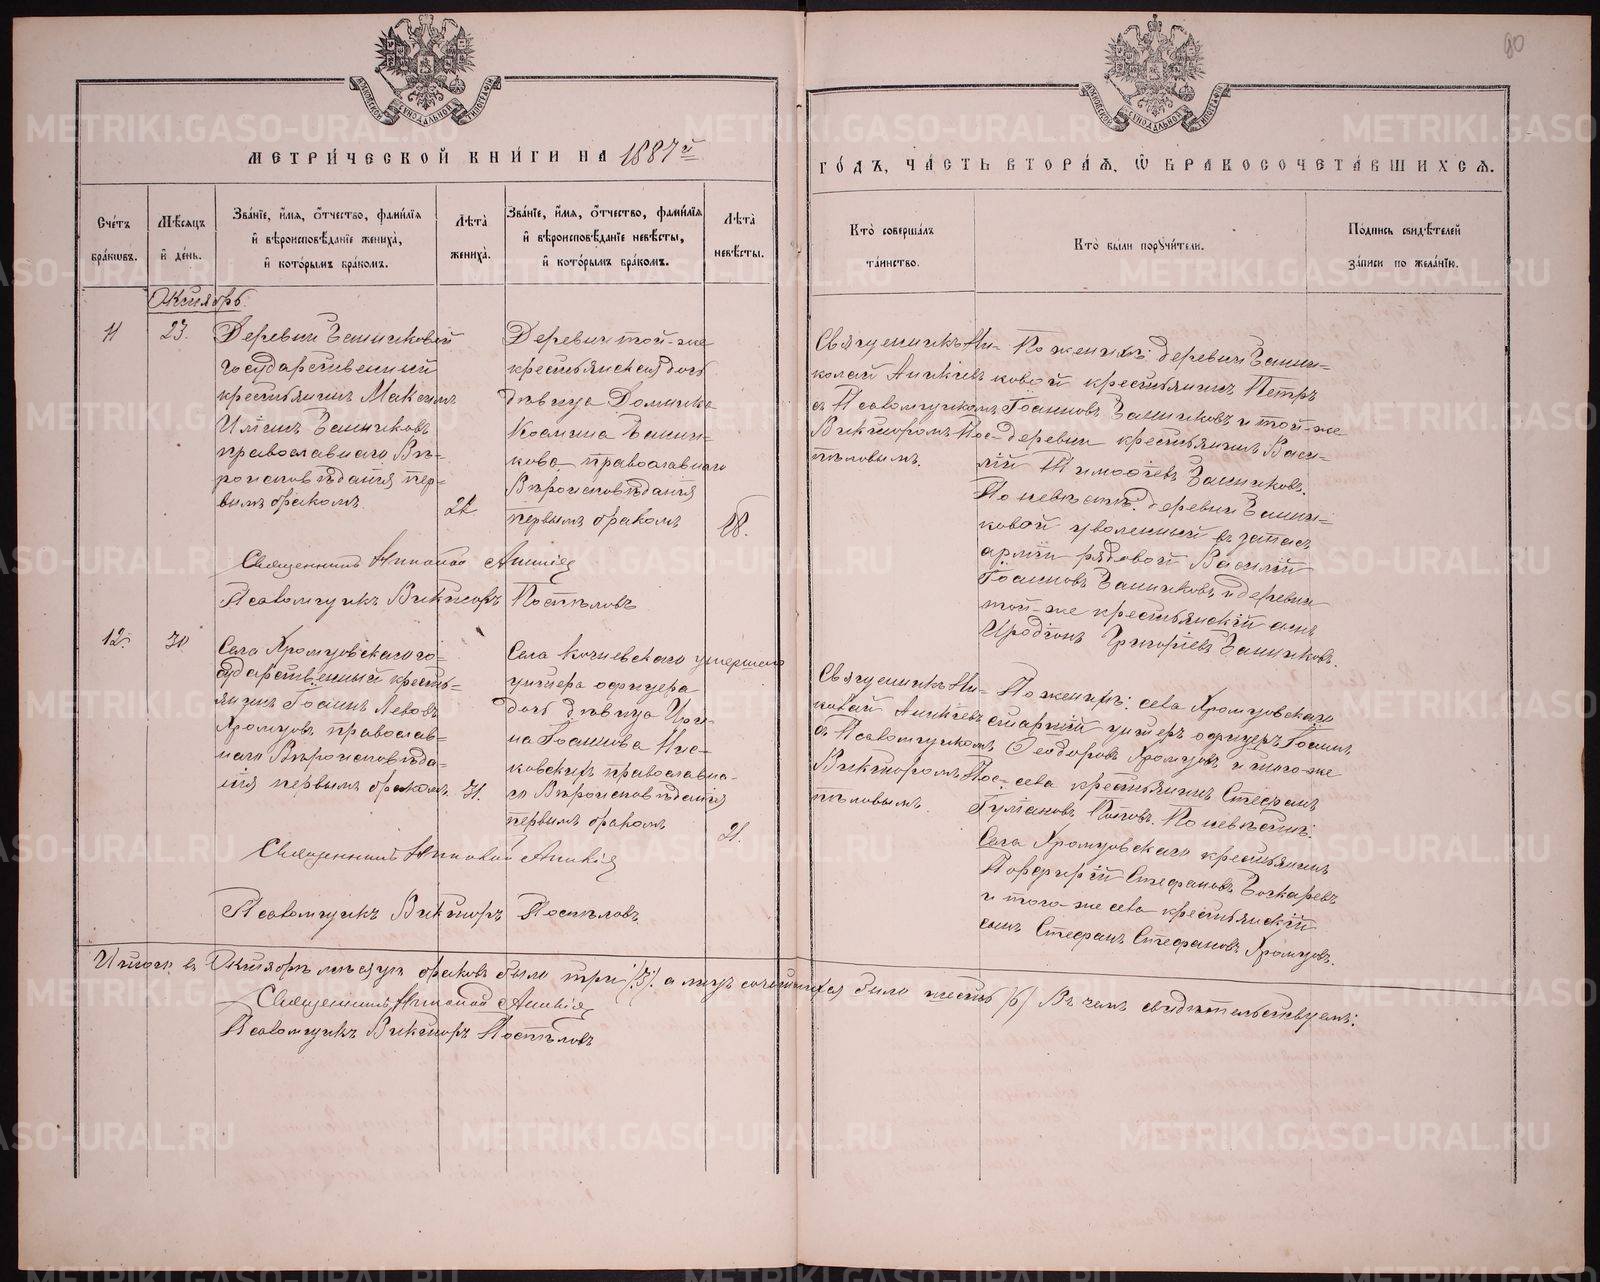 90
МЕТРИЧЕСКОЙ КНИГИ НА 1887й
ГОДЪ, ЧАСТЬ ВТОРАЯ, Ѡ БРАКОСОЧЕТАВШИХСЯ.
Счетъ браковъ.
Мѣсяцъ и день.
Званіе, имя, отчество, фамилія
и вѣроисповѣданіе жениха,
и которымъ бракомъ.
Лѣта
жениха.
Званіе, имя, отчество, фамилія
и вѣроисповѣданіе невѣсты,
и которымъ бракомъ.
Лѣта
невѣсты.
Кто совершалъ
таинство.
Кто были поручители.
Подпись свидѣтелей
записи по желанію.
Октябрь.
11
23.
Деревни
государственный
крестьянинъ Максимъ
православнаго Вѣ-
роисповѣданія пер-
вымъ бракомъ.
Деревни той-же
крестьянская дочь
дѣвица Домника
Космина
православнаго
Вѣроисповѣданія
первымъ бракомъ
18.
Священникъ Ни-
колай Аникіевъ
съ Псаломщикомъ
Викторомъ Пос-
пѣловымъ.
По женихѣ: деревни
ковой крестьянинъ Петръ
Іоанновъ и той-же
деревни крестьянинъ Васи-
лій Тимофеевъ
По невѣстѣ: деревни
ковой уволенный въ запасъ
арміи рядовой Василій
Іоанновъ и деревни
той-же крестьянскій сынъ
Иродіонъ Григоріевъ
Священникъ Николай Аникіев
Псаломщикъ Викторъ Поспѣловъ
12.
30
Села Хромцовскаго го-
сударственный кресть-
янинъ Іоаннъ Львовъ
Хромцовъ православ-
наго Вѣроисповѣда-
нія первымъ бракомъ.
31.
Села Кочневскаго умершаго
унтера офицера
дочь дѣвица Ири-
на Іоаннова
православна-
го Вѣроисповѣданія
первымъ бракомъ
21.
Священникъ Ни-
колай Аникіевъ
съ Псаломщикомъ
Викторомъ Пос-
пѣловымъ.
По женихѣ: села Хромцовскаго
старшій унтеръ офицеръ Іоаннъ
Ѳеодоровъ Хромцовъ и того-же
села крестьянинъ Стефанъ
Поповъ. По невѣстѣ:
Села Хромцовскаго крестьянинъ
Порфирій Стефановъ Бочкаревъ
и того-же села крестьянскій
сынъ Стефанъ Стефановъ Хромцовъ.
Священникъ Николай Аникіев
Псаломщикъ Викторъ Поспѣловъ.
Итого въ Октябрѣ мѣсяцѣ браковъ было три /3/. а лицъ сочетавшихся было шесть /6/ Въ чемъ свидѣтельствуемъ:
Священникъ Николай Аникіев
Псаломщикъ Викторъ Поспѣловъ
METRIKI.GASO-URAL.RU